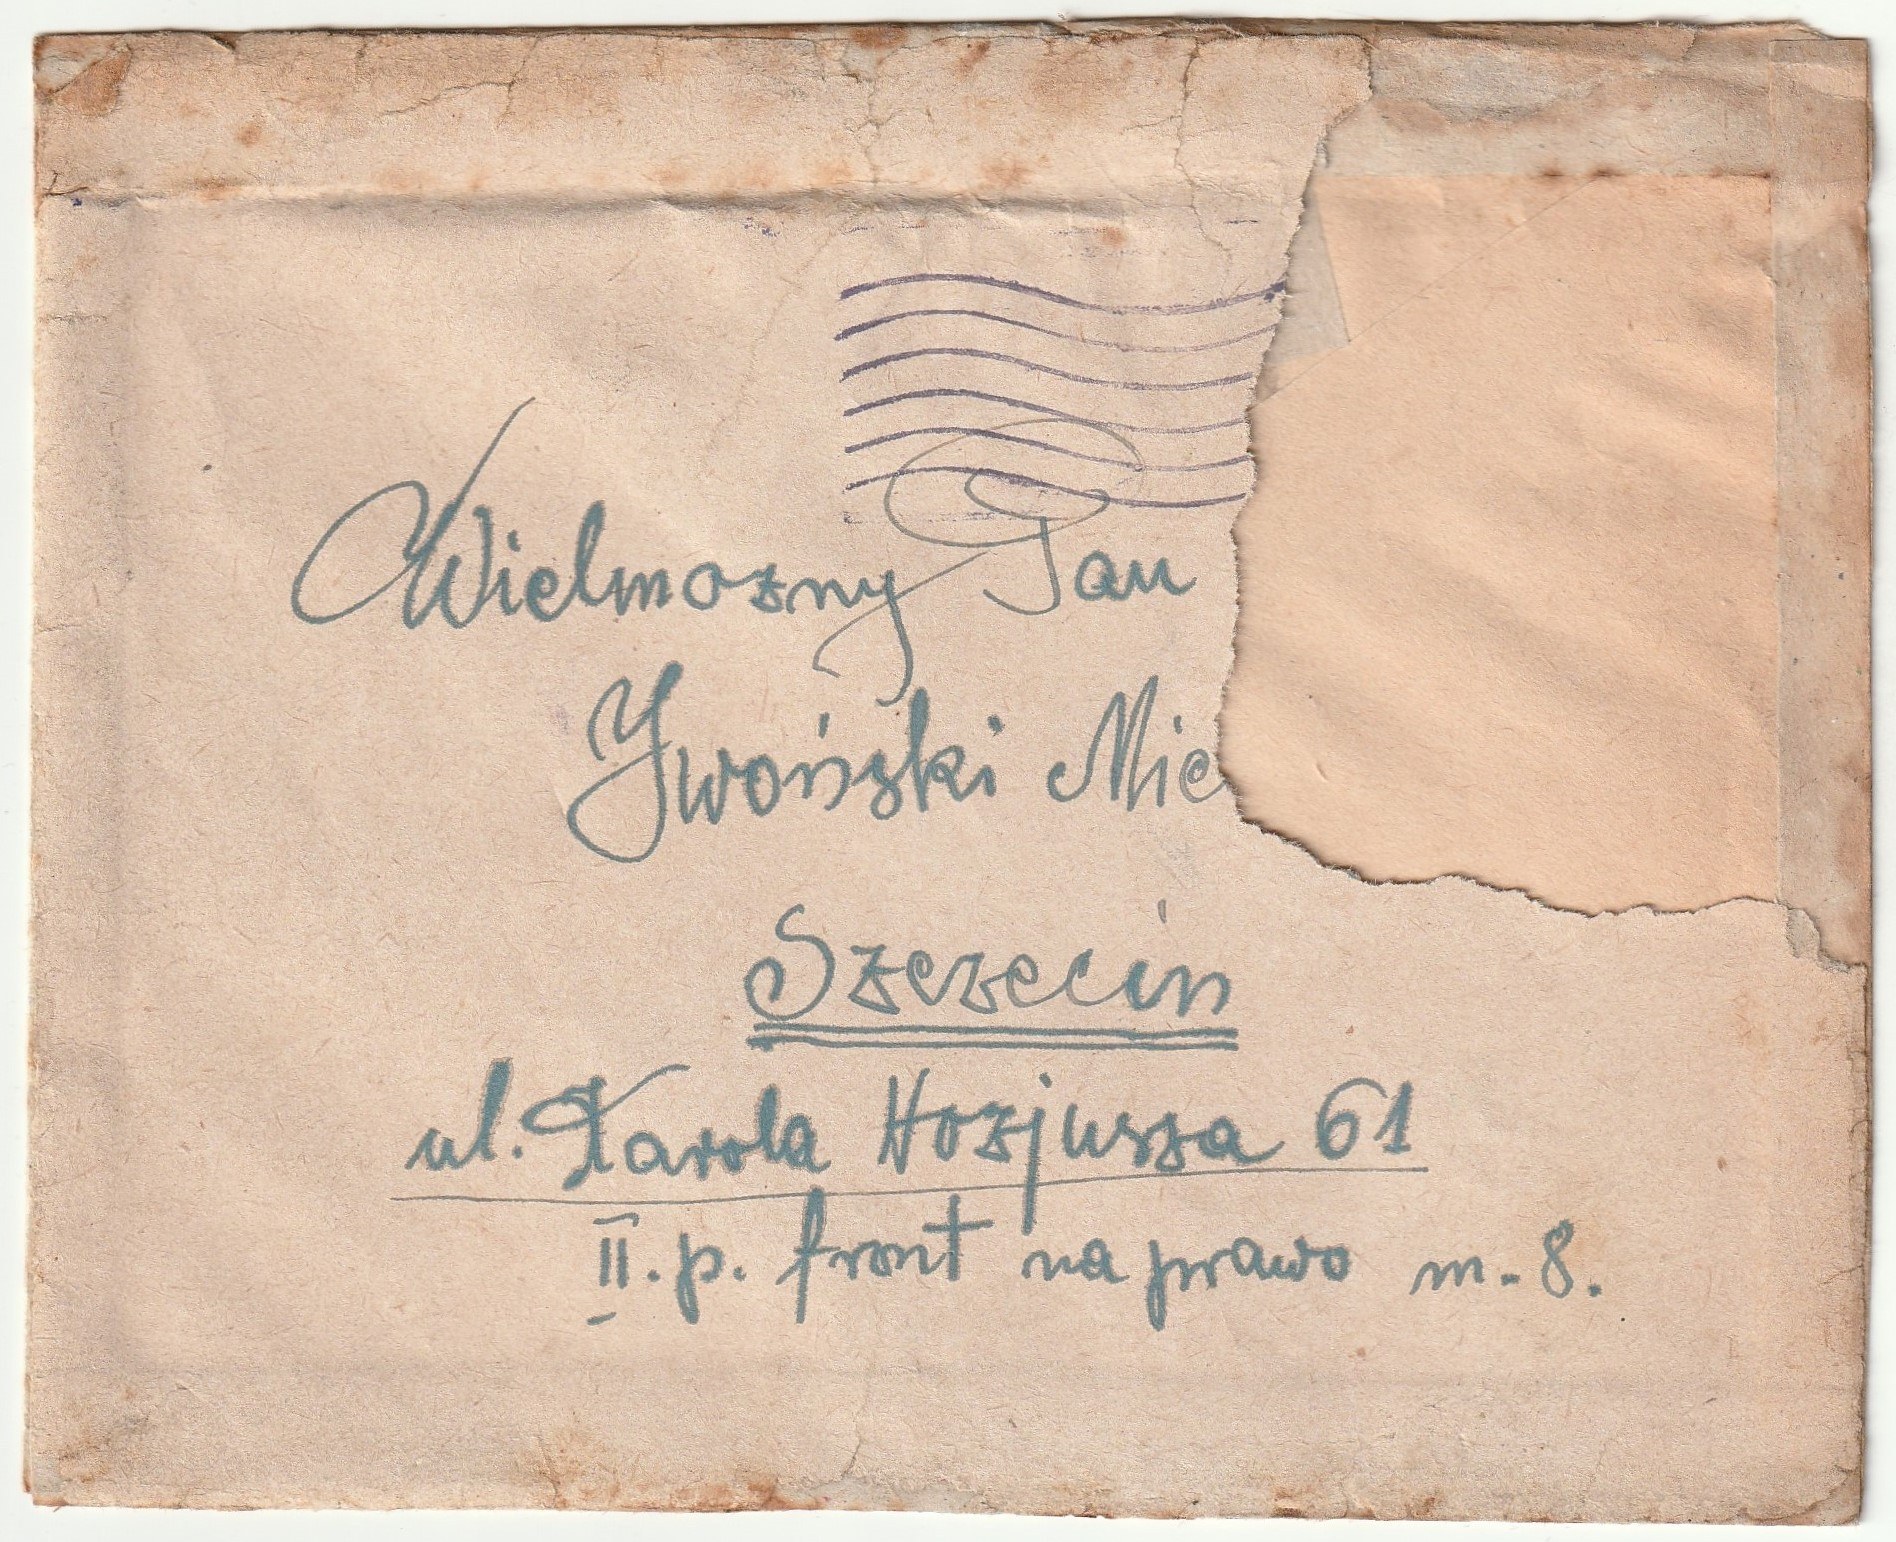 Wielmozny Pan
Iwoński Mie
Szczecin
ul. Karola Hozjusza 61
II. p. front na prawo m. 8.